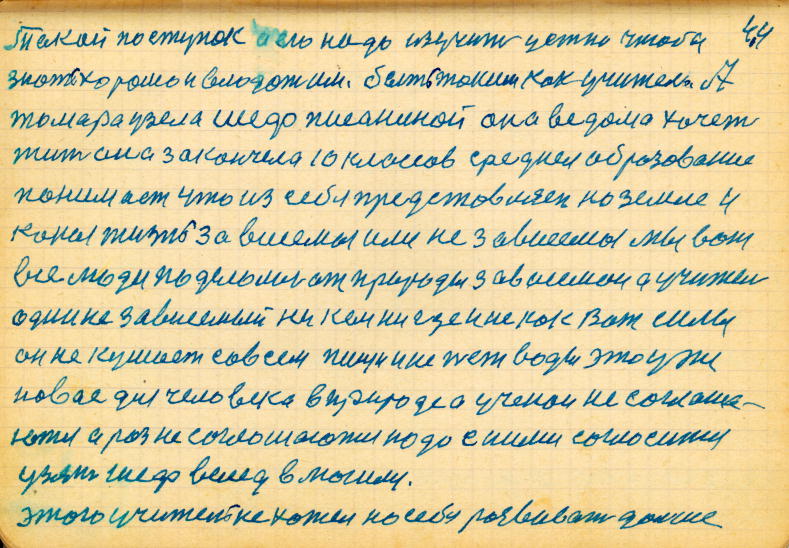 44
Такой поступок его надо изучить устно чтобы
знать хорошо и владеть им. быть таким как учитель. А
тамара узела шефо писаниной она ведома хочет
жит она закончела 10 классов среднея образование
понимает что из себя представляет на земле и
какея жизнь зависемы или не зависемы мы вот
все люди по делам от природы зависемои а учител
один не зависемый ни кем ни где и не как Вот силы
он не кушает совсем пищи и не пьет воды это уже
новае для человека в природе а ученои не соглаша-
ютя а раз не соглашаютя надо с ними согласитя
узять шеф вслед в могилу.
этого учитель не хотел на себя развивать далше